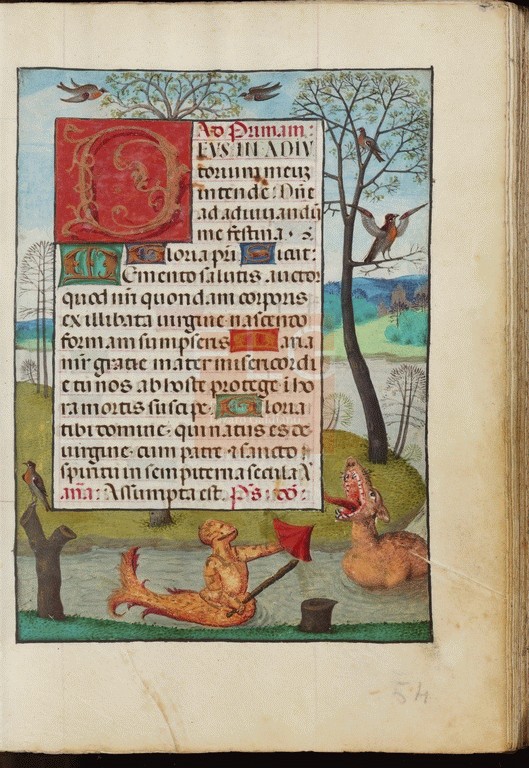 Ad Primam:
DEVS IN ADIV
torium meuz
intende: Dñe
ad adiuuandū
me festina. s.
Gloria pri. Sicut:
Memento salutis auctor
quod nr̄i quondam corporis
ex illibata uirgine nascendo
formam sumpseris Maria
mr̄ gratie mater misericordi
e tu nos ab hoste protege i ho
ra mortis suscipe. Gloria
tibi domine, qui natus es de
uirgine cum patre & sancto
spiritu in sempiterna secula A
añā: Assumpta est. Ps:
54